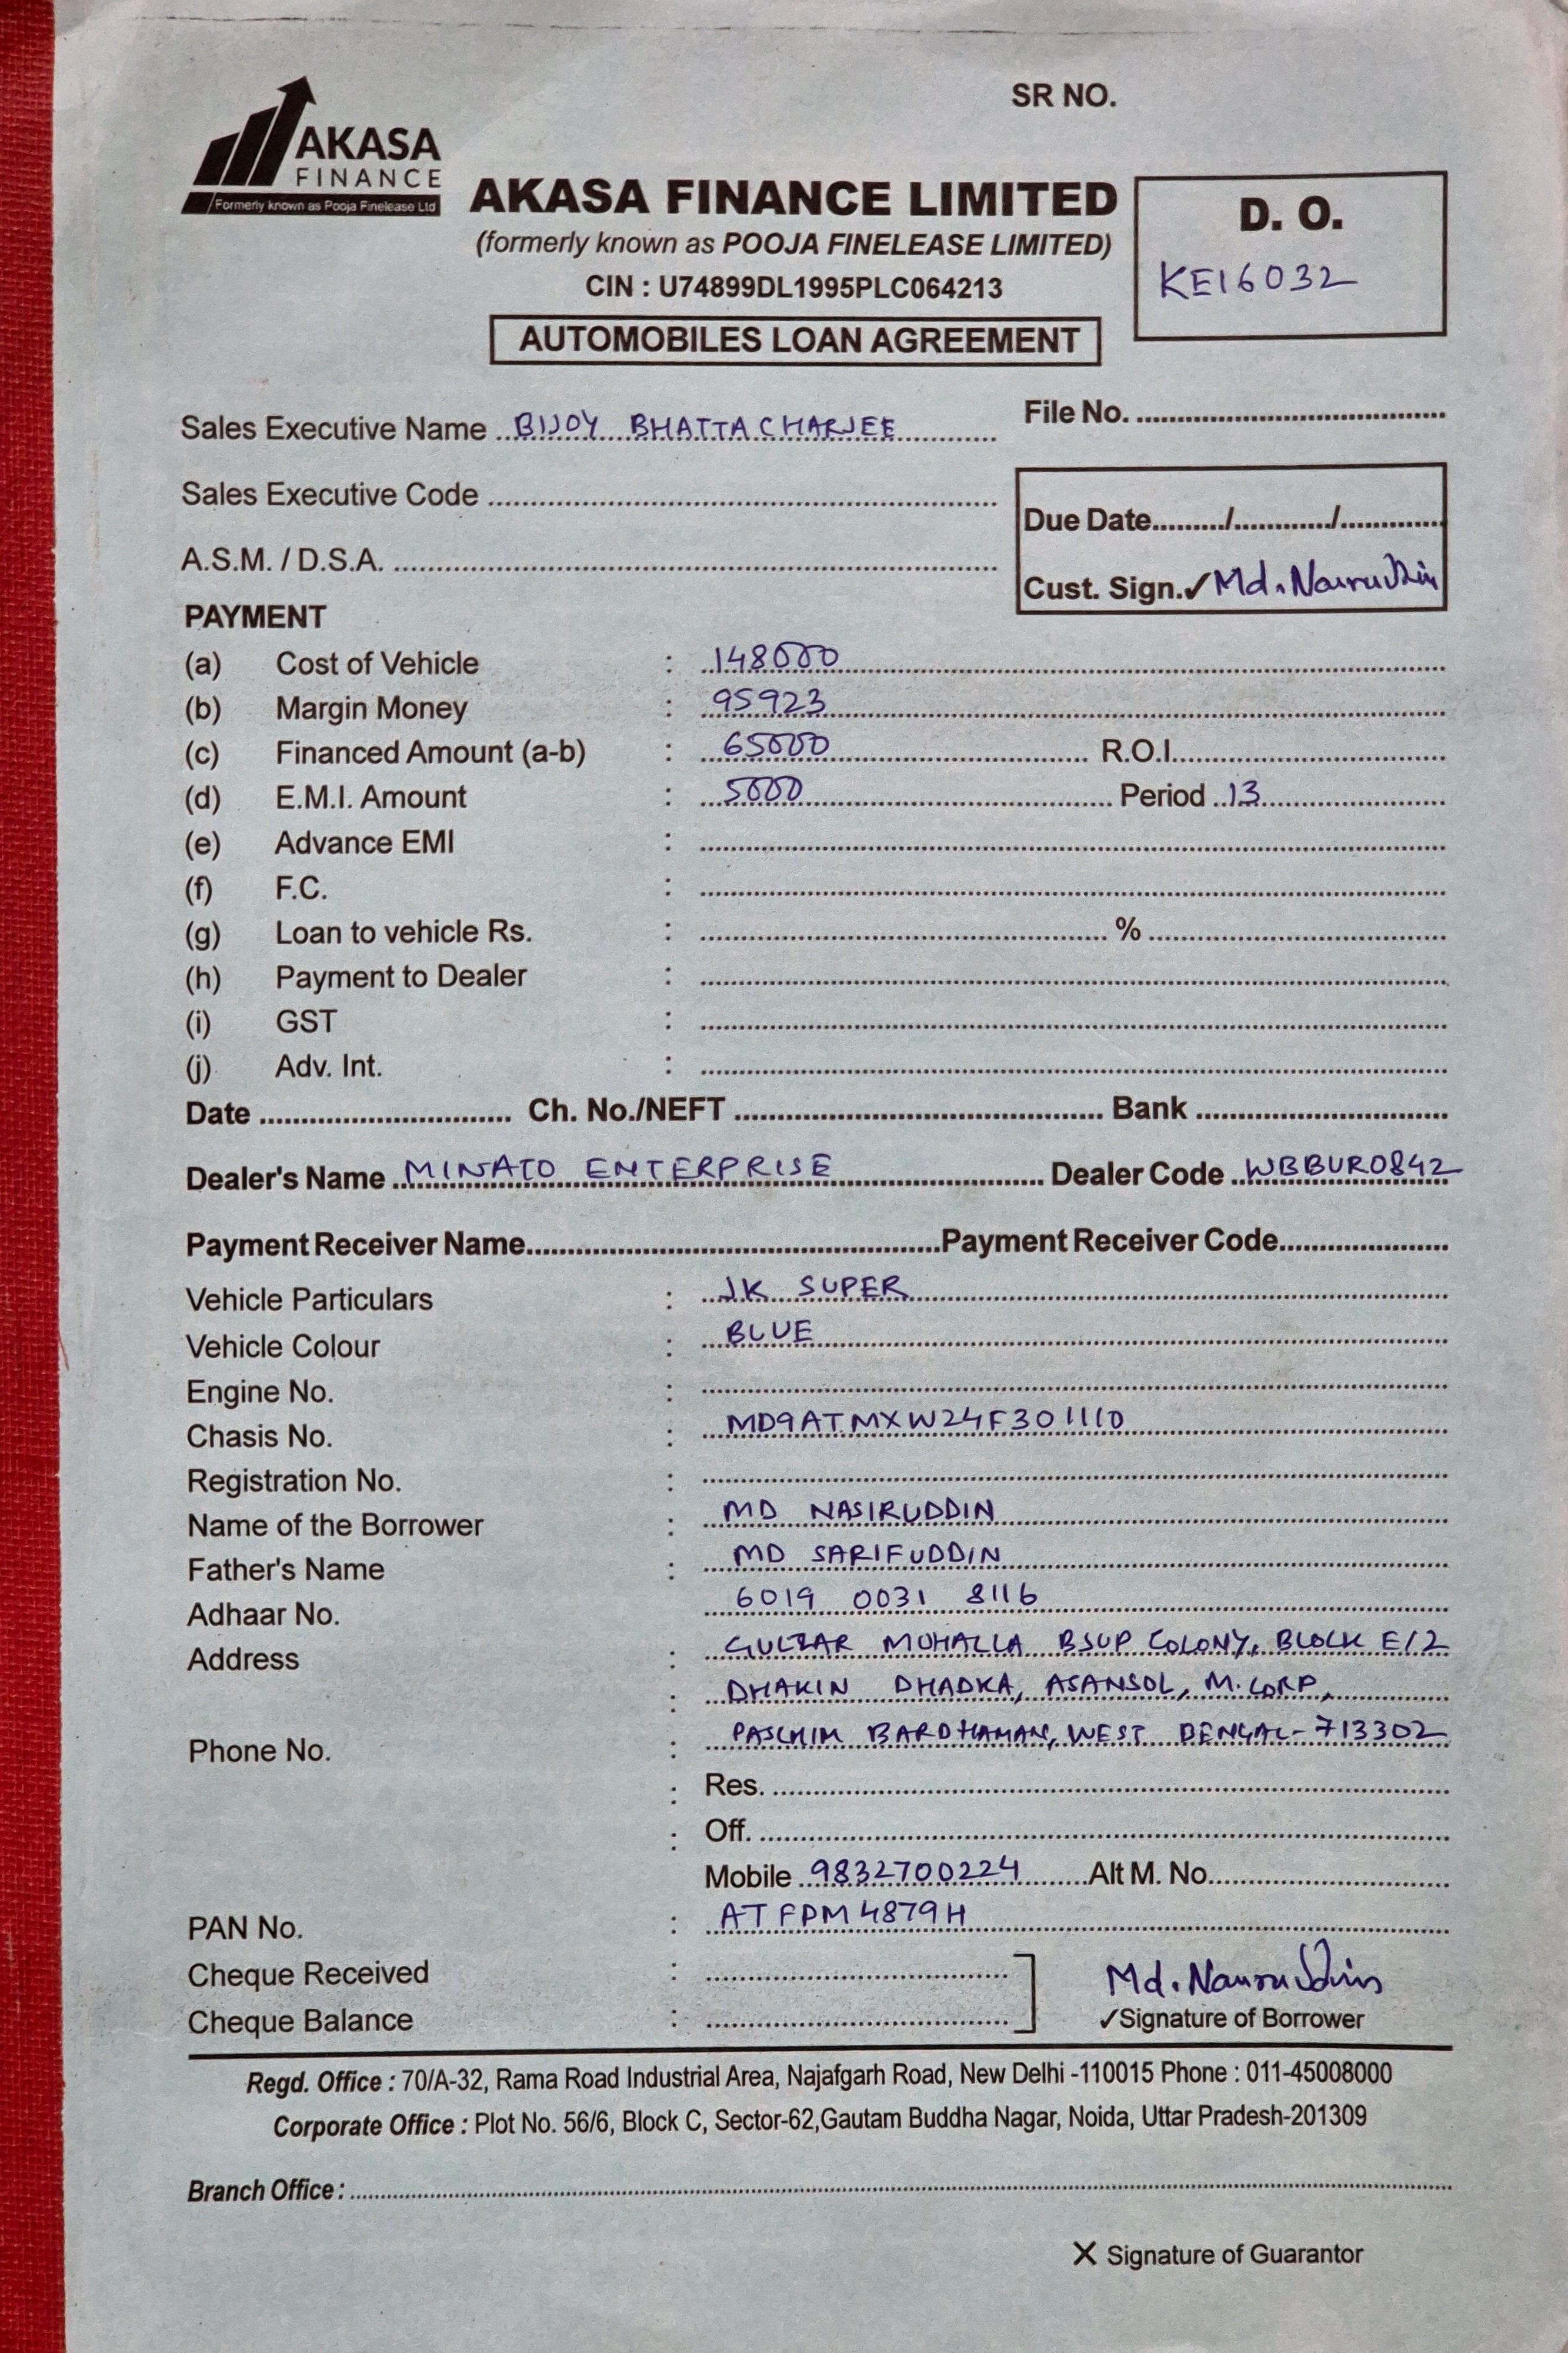 SR NO.
AKASA
FINANCE
Formerly known as Pooja Finelease Ltd
AKASA FINANCE LIMITED
(formerly known as POOJA FINELEASE LIMITED)
CIN : U74899DL1995PLC064213
AUTOMOBILES LOAN AGREEMENT
D. O.
KE16032
Sales Executive Name BIJOY BHATTACHARJEE
File No.
Sales Executive Code
Due Date / /
A.S.M. / D.S.A.
Cust. Sign. ✓ Md. Nasiruddin
PAYMENT
(a) Cost of Vehicle : 148000
(b) Margin Money : 95923
(c) Financed Amount (a-b) : 65000 R.O.I.
(d) E.M.I. Amount : 5000 Period 13
(e) Advance EMI :
(f) F.C. :
(g) Loan to vehicle Rs. : %
(h) Payment to Dealer :
(i) GST :
(j) Adv. Int. :
Date Ch. No./NEFT Bank
Dealer's Name MINATO ENTERPRISE Dealer Code WBBUR0842
Payment Receiver Name Payment Receiver Code
Vehicle Particulars : JK SUPER
Vehicle Colour : BLUE
Engine No. :
Chasis No. : MD9ATMXW24F301110
Registration No. :
Name of the Borrower : MD NASIRUDDIN
Father's Name : MD SARIFUDDIN
Adhaar No. 6019 0031 8116
Address : GULZAR MOHALLA BSUP COLONY, BLOCK E/2
: DHAKIN DHADKA, ASANSOL, M.CORP,
Phone No. : PASCHIM BARDHAMAN, WEST BENGAL-713302
: Res.
: Off.
Mobile 9832700224 Alt M. No.
PAN No. : ATFPM4879H
Cheque Received :
Cheque Balance :
Md. Nasiruddin
✓Signature of Borrower
Regd. Office : 70/A-32, Rama Road Industrial Area, Najafgarh Road, New Delhi -110015 Phone : 011-45008000
Corporate Office : Plot No. 56/6, Block C, Sector-62,Gautam Buddha Nagar, Noida, Uttar Pradesh-201309
Branch Office :
X Signature of Guarantor